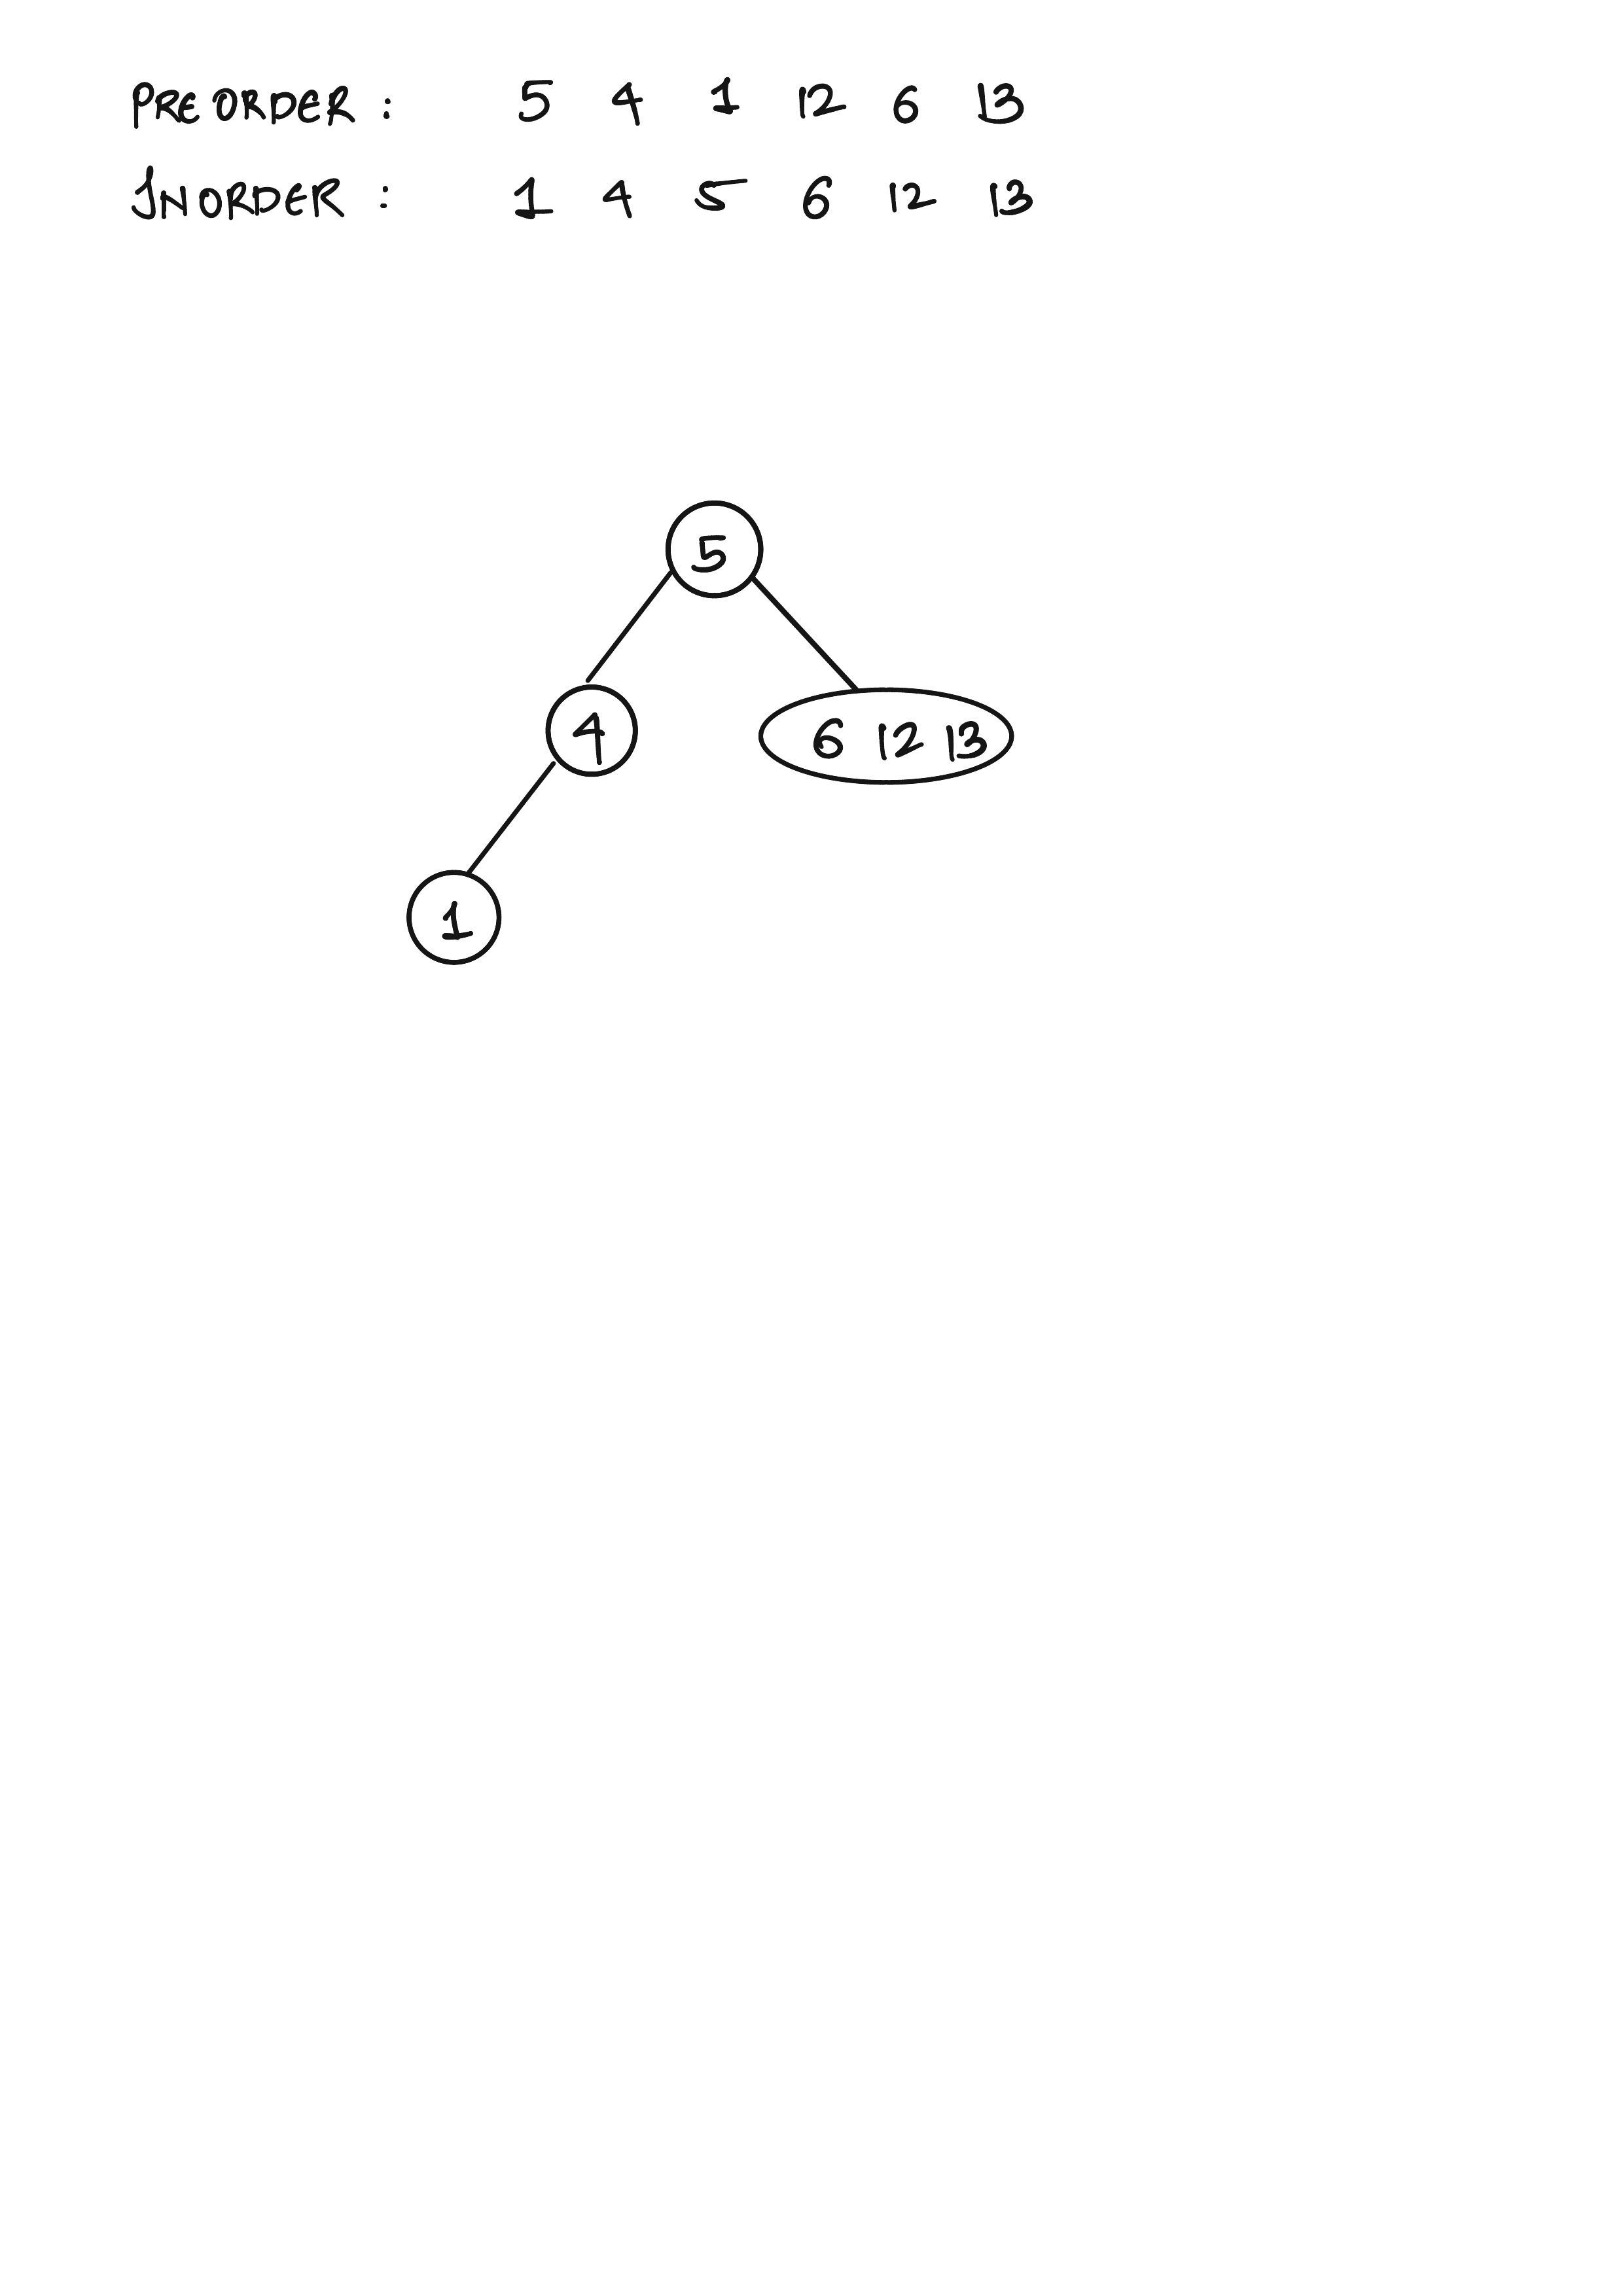 PREORDER : 5 4 1 12 6 13
INORDER : 1 4 5 6 12 13
5
4 6 12 13
1